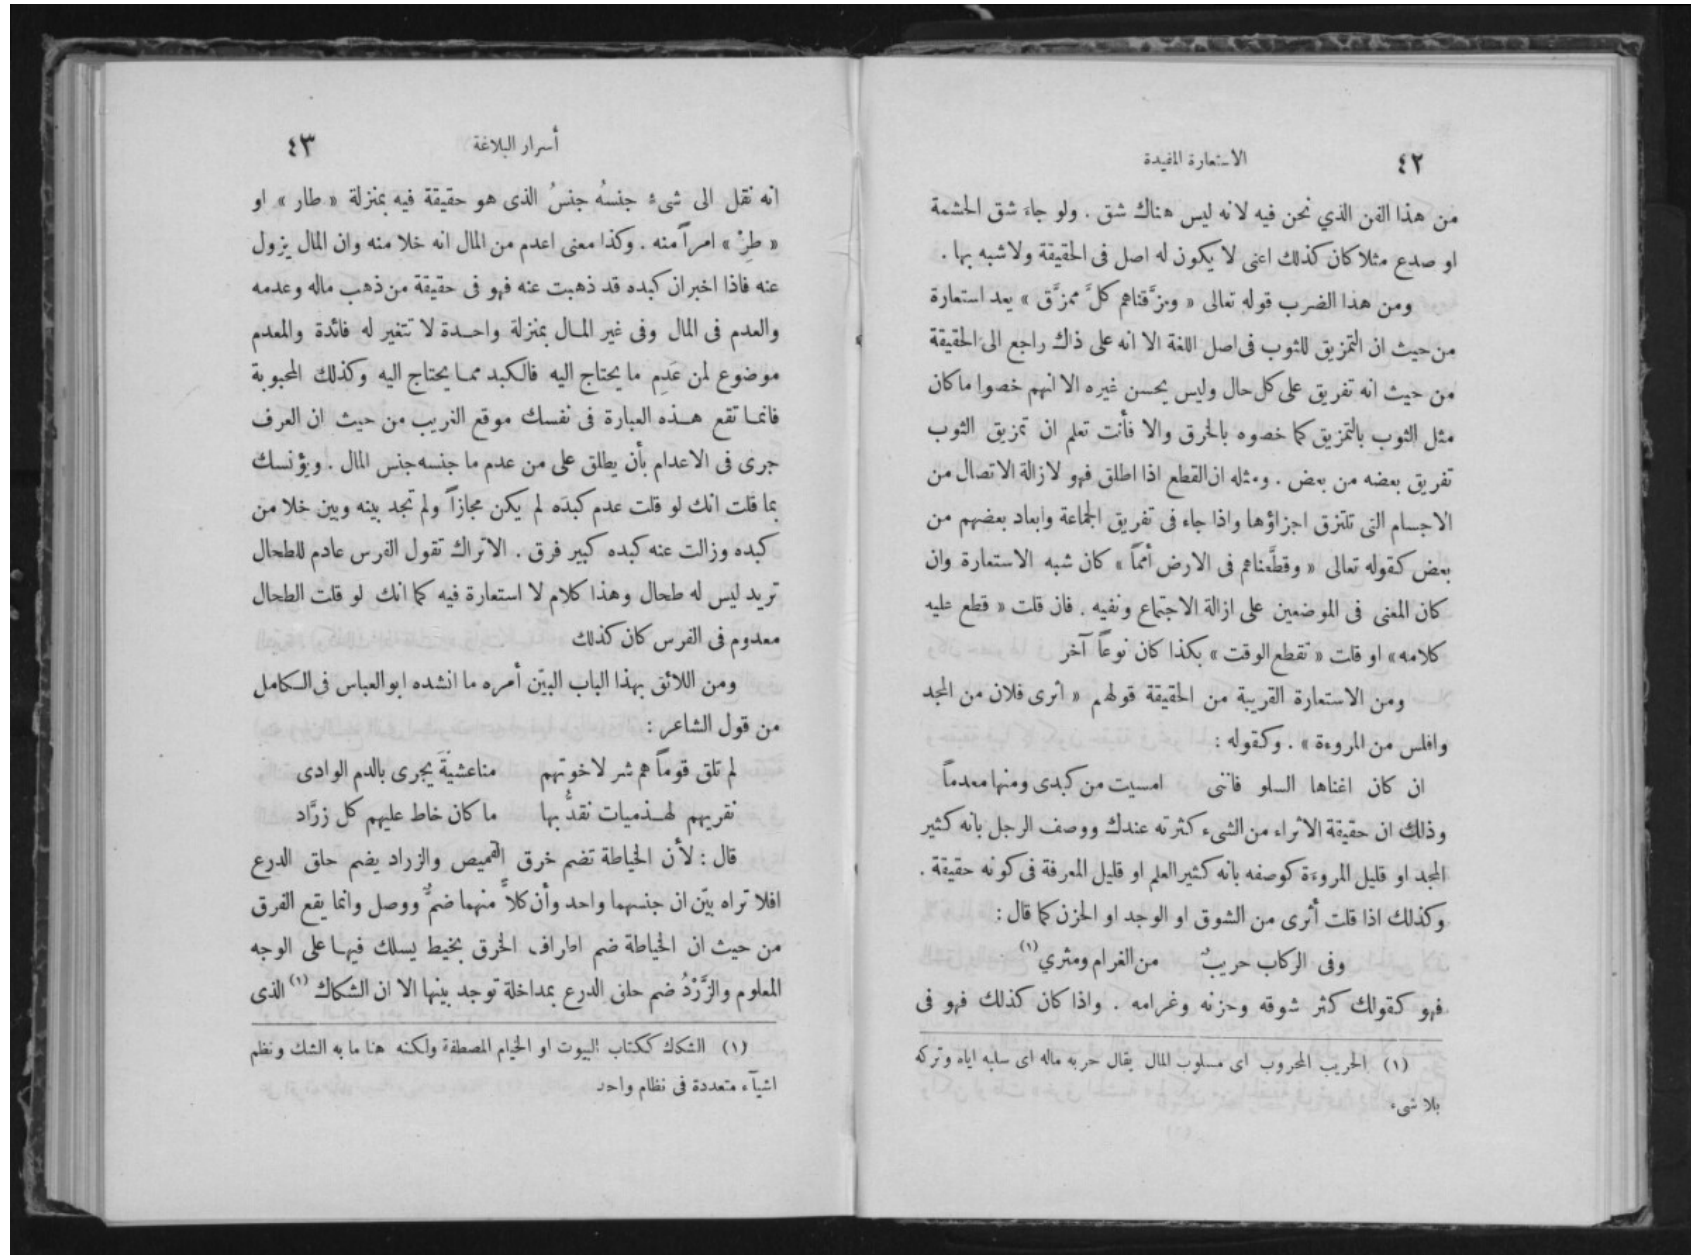 ٤٢
الاستعارة المفيدة
من هذا الفن الذي نحن فيه لانه ليس هناك شق . ولو جاء شق الحشمة
او صدع مثلا كان كذلك اعنى لا يكون له اصل فى الحقيقة ولا شبه بها .
ومن هذا الضرب قوله تعالى « ومزَّقناهم كلَّ ممزَّق » يعد استعارة
من حيث ان التمزيق للثوب فى اصل اللغة الا انه على ذاك راجع الى الحقيقة
من حيث انه تفريق على كل حال وليس يحسن غيره الا انهم خصوا ما كان
مثل الثوب بالتمزيق كما خصوه بالخرق والا فأنت تعلم ان تمزيق الثوب
تفريق بعضه من بعض . ومثله ان القطع اذا اطلق فهو لازالة الاتصال من
الاجسام التى تلتزق اجزاؤها واذا جاء فى تفريق الجماعة وابعاد بعضهم من
بعض كقوله تعالى « وقطَّعناهم فى الارض أمماً » كان شبه الاستعارة وان
كان المعنى فى الموضعين على ازالة الاجتماع ونفيه . فان قلت « قطع عليه
كلامه » او قلت « نقطع الوقت » بكذا كان نوعاً آخر
ومن الاستعارة القريبة من الحقيقة قولهم « اثرى فلان من المجد
وافلس من المروءة » . وكقوله :
ان كان اغناها السلو فاننى امسيت من كبدى ومنها معدماً
وذلك ان حقيقة الاثراء من الشىء كثرته عندك ووصف الرجل بانه كثير
المجد او قليل المروءة كوصفه بانه كثير العلم او قليل المعرفة فى كونه حقيقة .
وكذلك اذا قلت أثرى من الشوق او الوجد او الحزن كما قال :
وفى الركاب حريبٌ من الغرام ومثري (١)
فهو كقولك كثر شوقه وحزنه وغرامه . واذا كان كذلك فهو فى
(١) الحريب المحروب اى مسلوب المال يقال حربه ماله اى سلبه اياه وتركه
بلا شىء
أسرار البلاغة
٤٣
انه نقل الى شىء جنسهُ جنسُ الذى هو حقيقة فيه بمنزلة « طار » او
« طِرْ » امراً منه . وكذا معنى اعدم من المال انه خلا منه وان المال يزول
عنه فاذا اخبر ان كبده قد ذهبت عنه فهو فى حقيقة من ذهب ماله وعدمه
والعدم فى المال وفى غير المال بمنزلة واحدة لا تتغير له فائدة والمعدم
موضوع لمن عَدِم ما يحتاج اليه فالكبد مما يحتاج اليه وكذلك المحبوبة
فانما تقع هذه العبارة فى نفسك موقع الغريب من حيث ان العرف
جرى فى الاعدام بأن يطلق على من عدم ما جنسه جنس المال . ويؤنسك
بما قلت انك لو قلت عدم كبدَه لم يكن مجازاً ولم تجد بينه وبين خلا من
كبده وزالت عنه كبده كبير فرق . الا تراك تقول الفرس عادم للطحال
تريد ليس له طحال وهذا كلام لا استعارة فيه كما انك لو قلت الطحال
معدوم فى الفرس كان كذلك
ومن اللائق بهذا الباب البيّن أمره ما انشده ابو العباس فى الكامل
من قول الشاعر :
لم تلق قوماً هم شر لاخوتهم مناعشيةَ يجرى بالدم الوادى
نقريهم لهذميات نقدُّ بها ما كان خاط عليهم كل زرَّاد
قال : لأن الخياطة تضم خرق القميص والزراد يضم حلق الدرع
افلا تراه بيّن ان جنسهما واحد وأن كلاًّ منهما ضمٌّ ووصل وانما يقع الفرق
من حيث ان الخياطة ضم اطراف الخرق بخيط يسلك فيها على الوجه
المعلوم والزَّرْدُ ضم حلق الدرع بمداخلة توجد بينها الا ان الشكاك (١) الذى
(١) الشكاك ككتاب البيوت او الخيام المصطفة ولكنه هنا ما به الشك ونظم
اشيآء متعددة فى نظام واحد